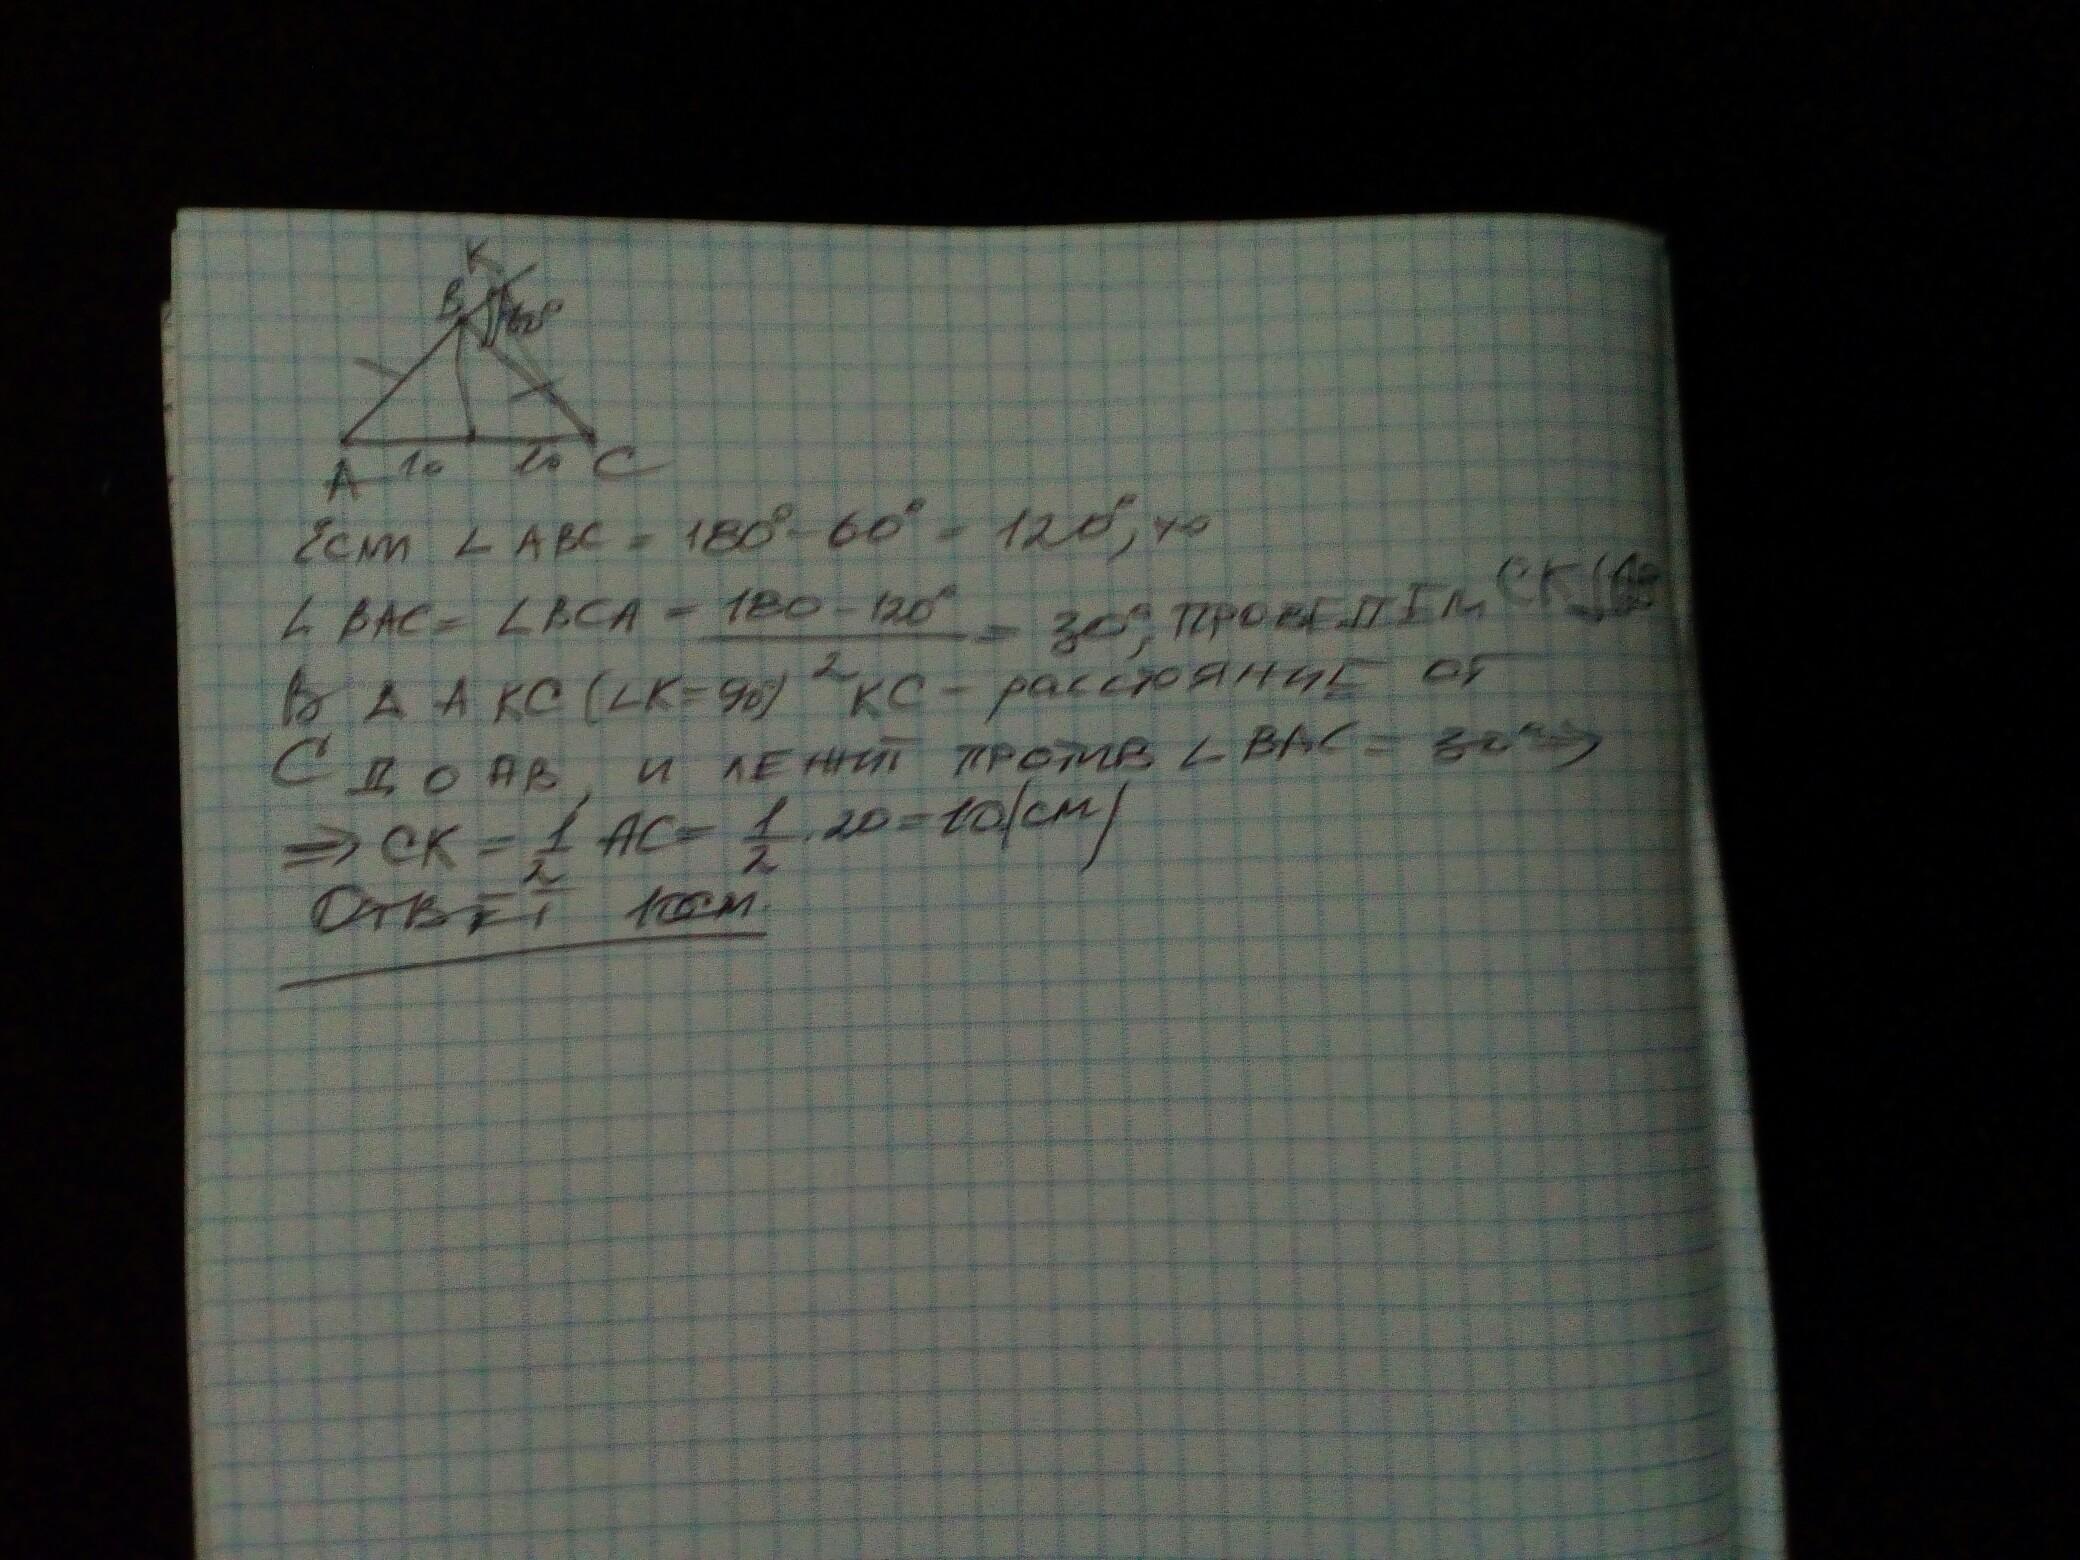 K
B 60°
A 10 10 C
Если ∠ABC = 180° - 60° = 120°, то
∠BAC = ∠BCA = (180 - 120°)/2 = 30°, проведём CK
В Δ AKC (∠K = 90°) KC - расстояние от
C до AB, и лежит против ∠BAC = 30° ⇒
⇒ CK = 1/2 AC = 1/2 · 20 = 10 (см)
Ответ 10см.